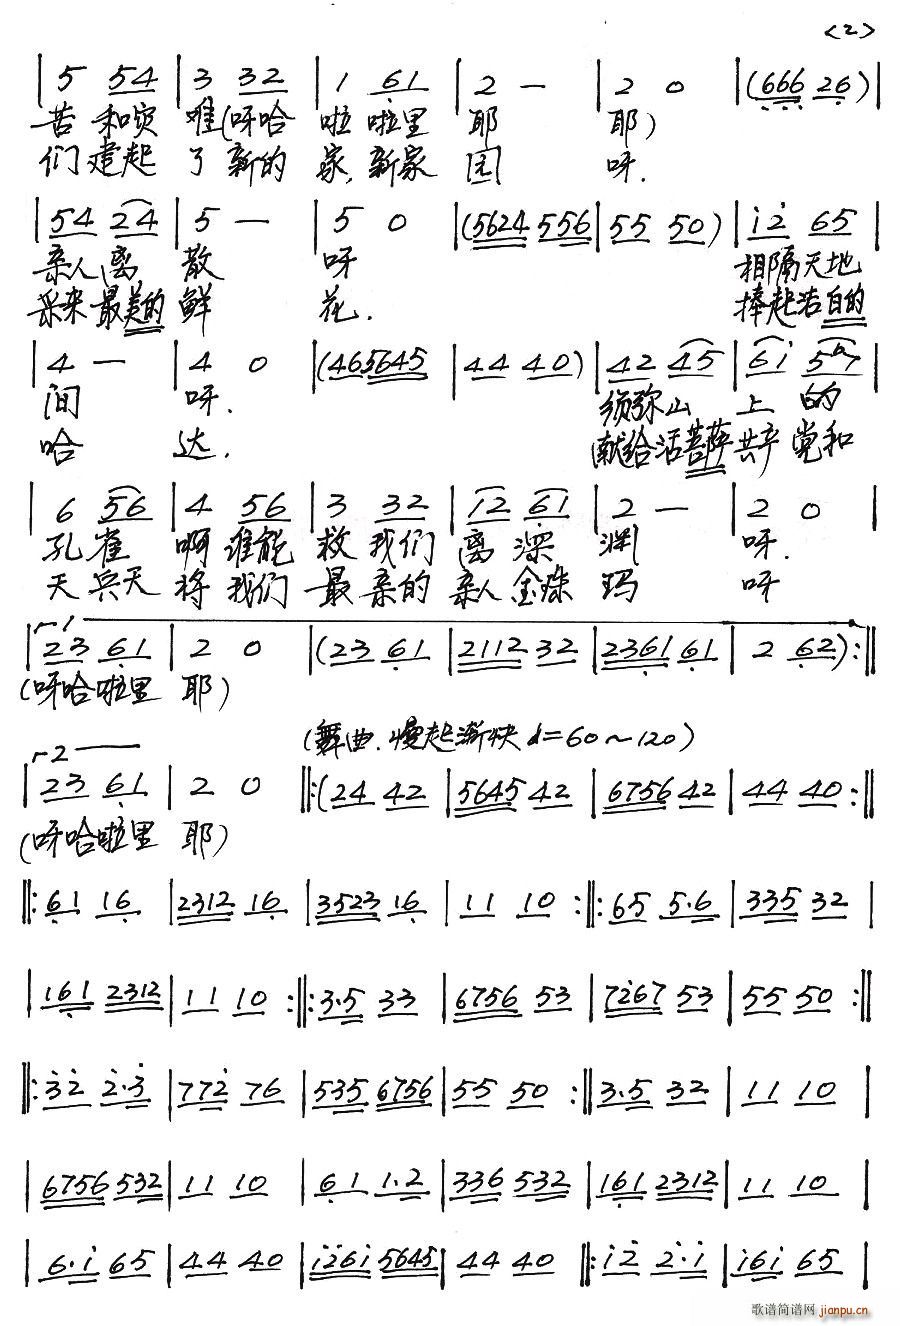 <2>
| 5 54 | 3 32 | 1 61 | 2 — | 2 0 | (666 26) |
苦 和灾 难(呀哈 啦 啦里 耶 耶)
们 建起 了 新的 家,新家 园 呀.
| 54 24 | 5 — | 5 0 | (5624 556 | 55 50) | i2 65 |
亲人 离 散 呀 相隔天地
采来最美的 鲜 花. 捧起洁白的
4 — | 4 0 | (465645 | 44 40) | 42 45 | 6i 567 |
间 呀. 须弥山 上 的
哈 达. 献给活菩萨共产 党和
| 6 56 | 4 56 | 3 32 | 12 61 | 2 — | 2 0 |
孔雀 啊 谁能 救 我们 离 深 渊 呀.
天 兵天 将 我们 最 亲的 亲人 金珠 玛 呀
1
| 23 61 | 2 0 | (23 61 | 2112 32 | 2361 61 | 2 62) :||
(呀哈啦里 耶)
(舞曲.慢起渐快 d=60~120)
2
| 23 61 | 2 0 ||: (24 42 | 5645 42 | 6756 42 | 44 40 :||
(呀哈啦里 耶)
||: 61 16 | 2312 16 | 3523 16 | 11 10 :||: 65 5·6 | 335 32 |
| 161 2312 | 11 10 :||: 3·5 33 | 6756 53 | 7267 53 | 55 50 :||
||: 32 2·3 | 772 76 | 535 6756 | 55 50 :||: 3·5 32 | 11 10 |
| 6756 532 | 11 10 | 61 1·2 | 336 532 | 161 2312 | 11 10 |
| 6·i 65 | 44 40 | i26i 5645 | 44 40 ||: i2 2·i | i6i 65 |
歌谱简谱网
jianpu.cn